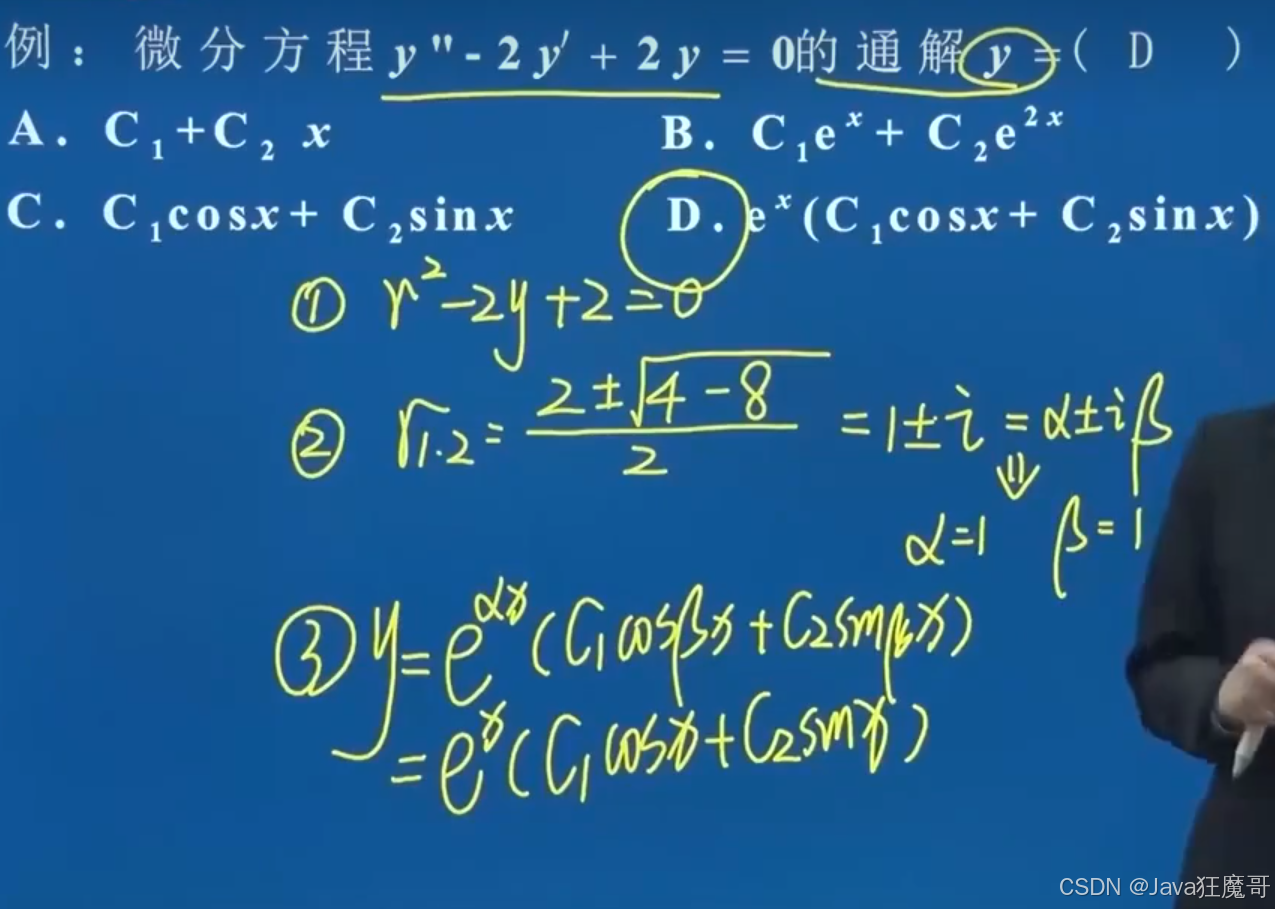 例：微分方程y"-2y′+2y=0的通解y=( D )
A. C₁+C₂ x B. C₁eˣ+ C₂e²ˣ
C. C₁cosx+ C₂sinx D. eˣ(C₁cosx+ C₂sinx)
① r²-2y+2=0
② r₁.₂= (2±√(4-8))/2 =1±i =α±iβ
⇓
α=1 β=1
③ y=e^(αx)(C₁cosβx+C₂sinβx)
=eˣ(C₁cosx+C₂sinx)
CSDN @Java狂魔哥